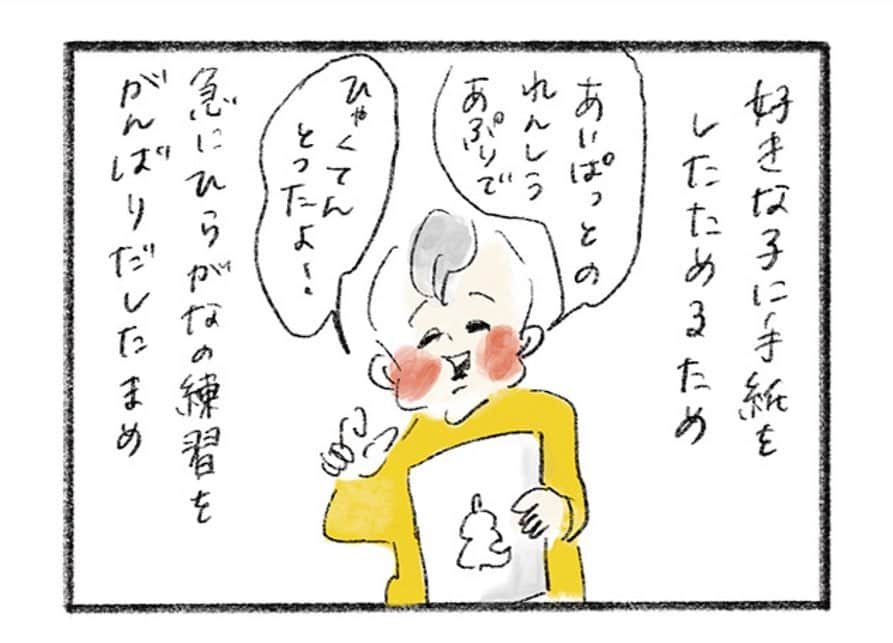 好きな子に手紙を
したためるため
あいぱっどの
れんしう
あぷりで
ひゃくてん
とったよ!
急にひらがなの練習を
がんばりだしたまめ